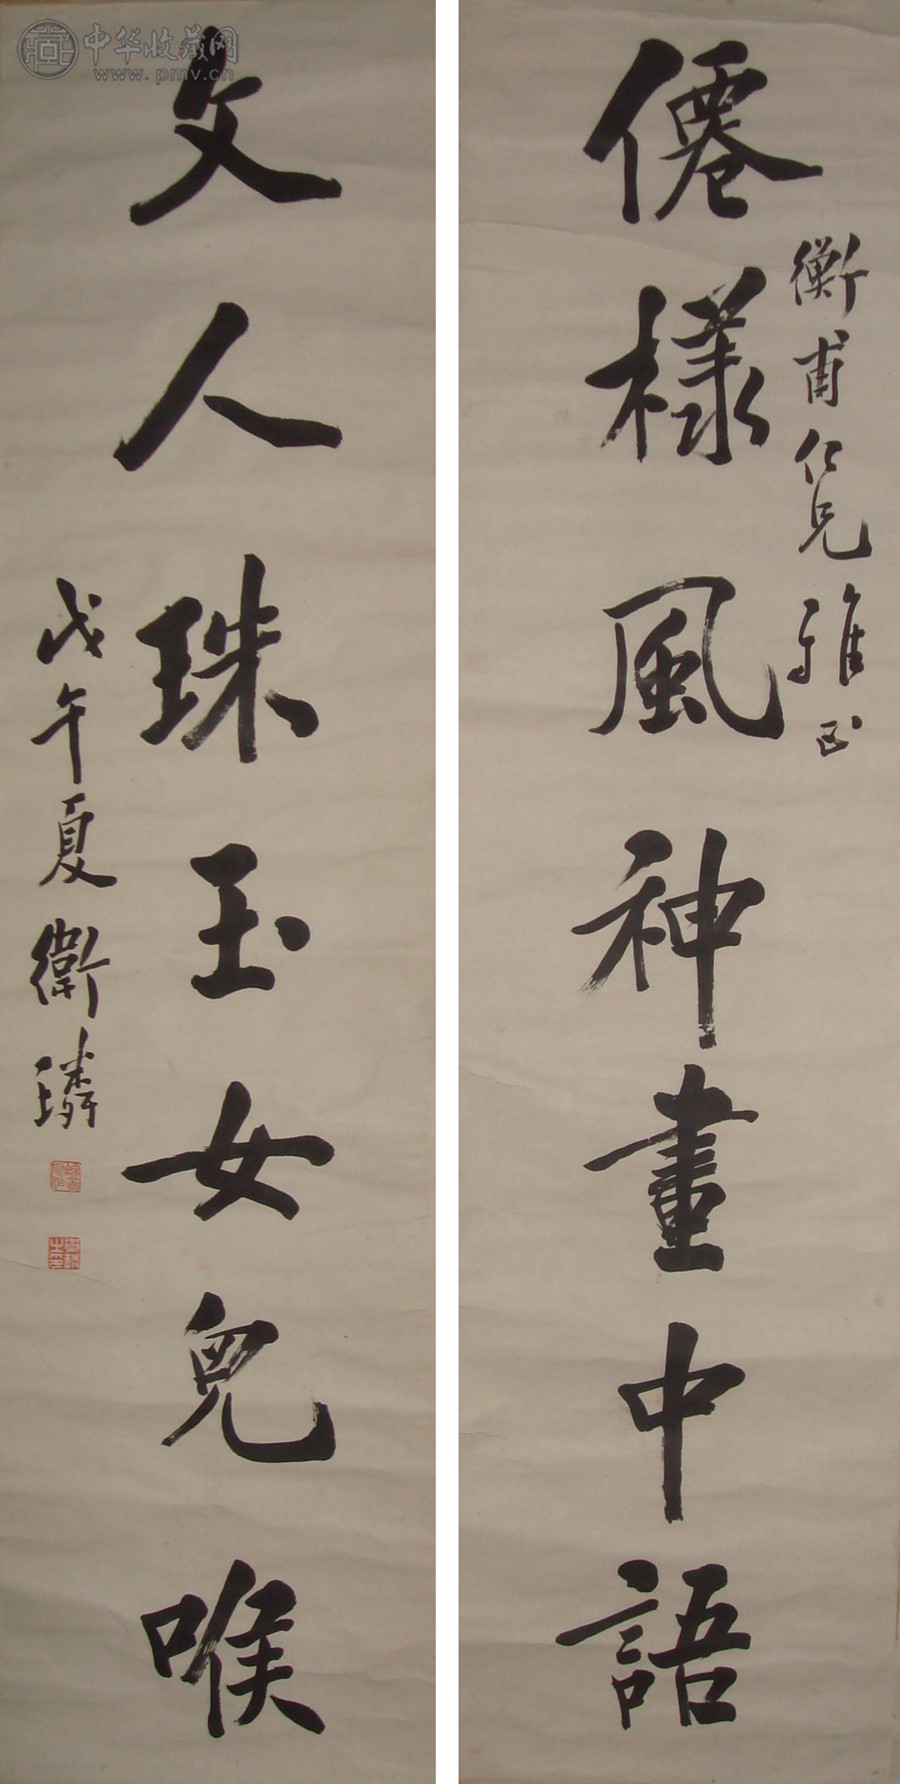 僊樣風神畫中語
衡甫仁兄雅正
文人珠玉女兒喉
戊午夏衛璘
中华收藏网
www.pmv.cn